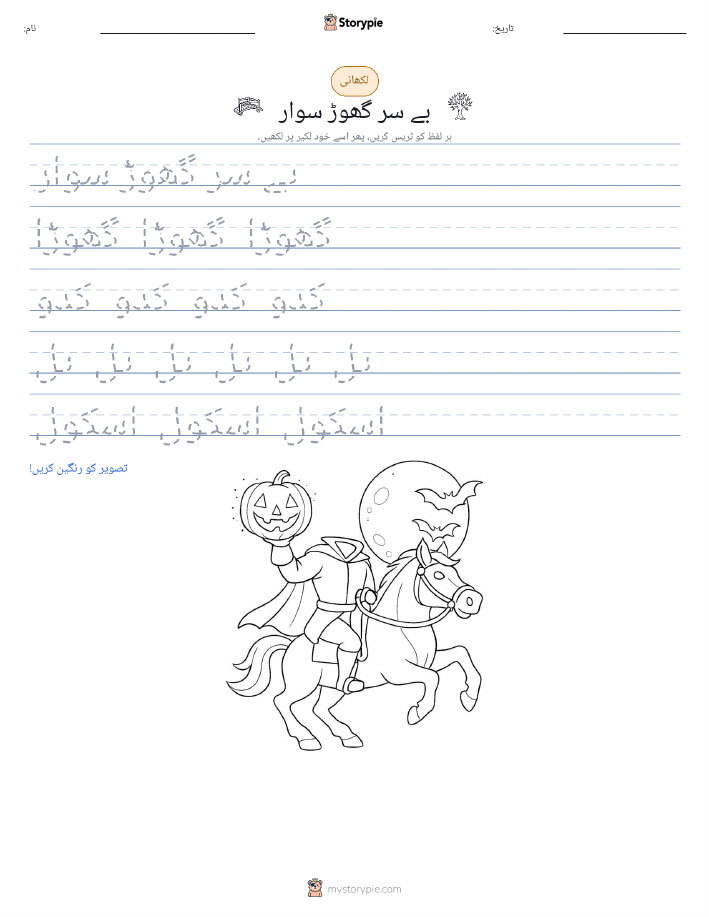 Storypie
نام:
تاریخ:
لکھائی
بے سر گھوڑ سوار
ہر لفظ کو ٹریس کریں، پھر اسے خود لکیر پر لکھیں۔
بے سر گھوڑ سوار
گھوڑا گھوڑا گھوڑا
کدو کدو کدو کدو
پل پل پل پل پل پل
اسکول اسکول اسکول
تصویر کو رنگین کریں!
mystorypie.com